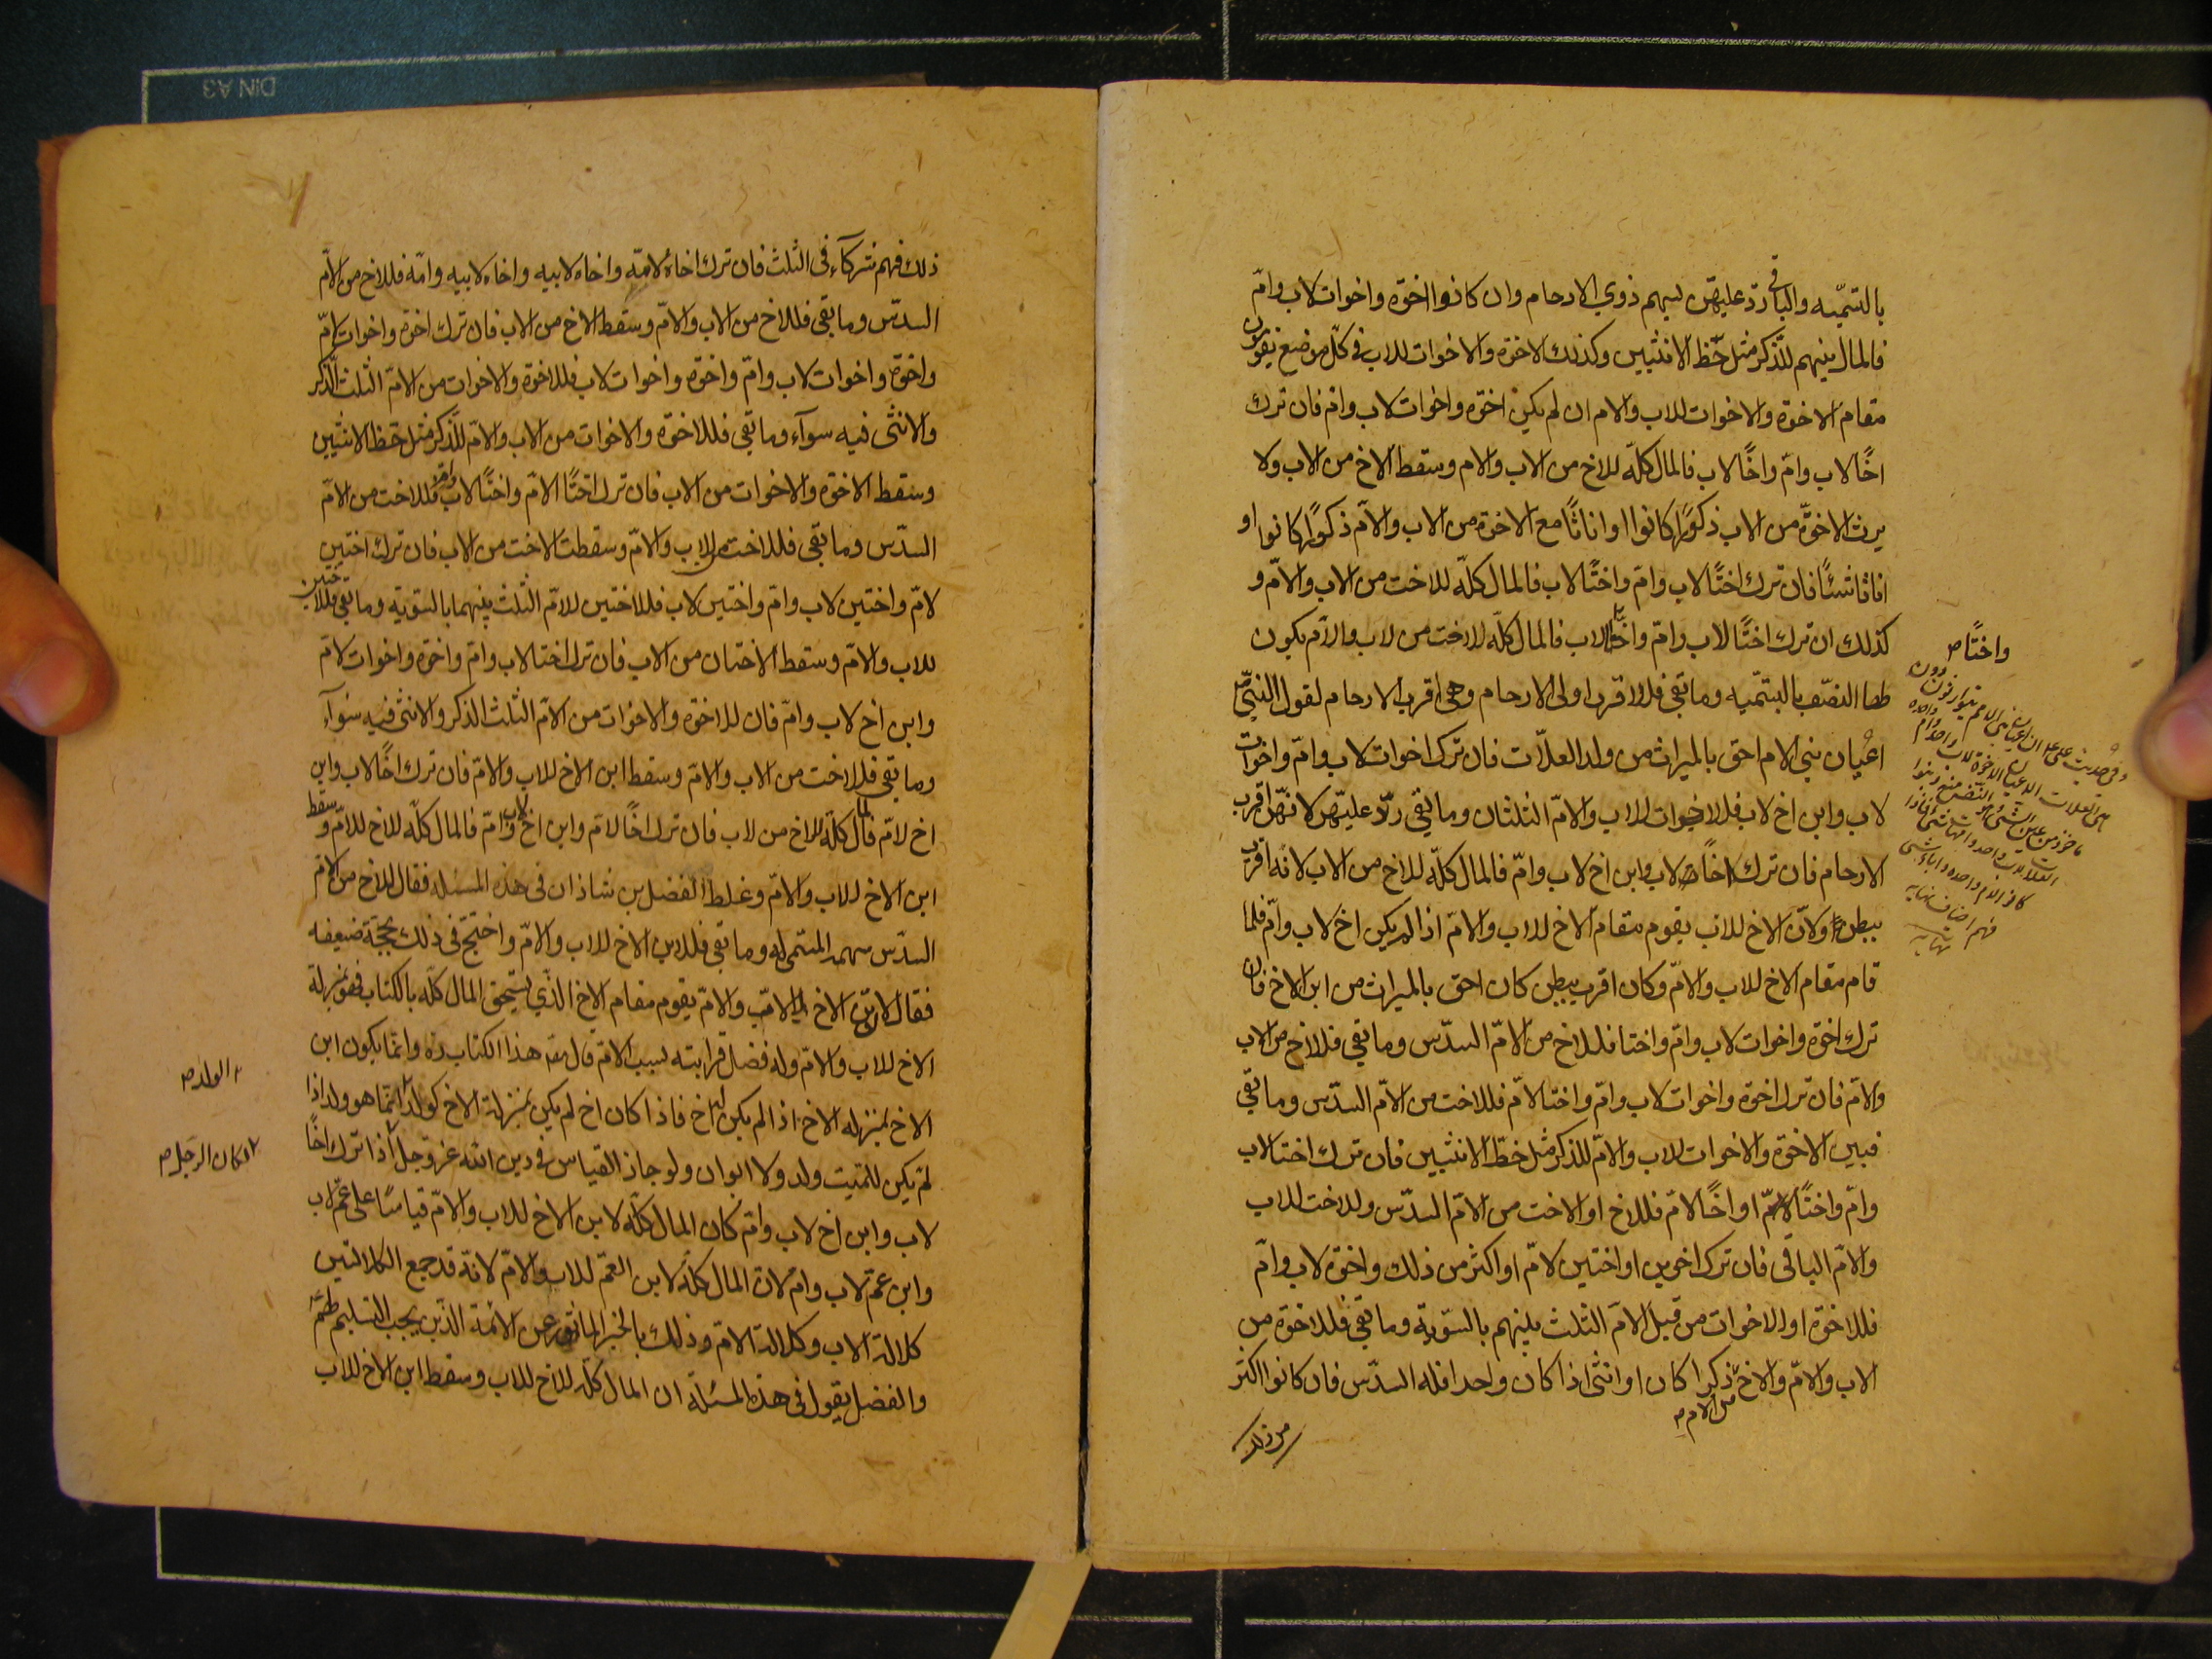 بالتسميه والباقى رد عليهن بسهم ذوي الارحام وان كانوا اخوة واخوات لاب وامّ
فالمال بينهم للذّكر مثل حّظ الانثيين وكذلك الاخوة والاخوات للاب فى كلّ موضع يقومون
مقام الاخوة والاخوات للاب والام ان لم يكن اخوة واخوات لاب وامّ فان ترك
اخًا لاب وامّ واخًا لاب فالمال كلّه للاخ من الاب والام وسقط الاخ من الاب ولا
يرث الاخوّة من الاب ذكورًا كانوا او اناثًا مع الاخوة من الاب والامّ ذكورًا كانوا او
اناثا شئًا فان ترك اختًا لاب وامّ واختًا لاب فالمال كلّه للاخت من الاب والامّ و
كذلك ان ترك اختًا لاب وامّ واخًا لاب فالمال كلّه للاخت من لاب والامّ يكون
لها النصّف بالتسّميه وما بقى فلاقرب اولى الارحام وهى اقرب الارحام لقول النبىّ ص
اعيان بنى الام احق بالميراث من ولد العلاّت فان ترك اخوات لاب وامّ واخوات
لاب وابن اخ لاب فللاخوات للاب والامّ الثلثان وما بقى ردّ عليهّن لانهّن اقرب
الارحام فان ترك اخًا لاب وابن اخ لاب وامّ فالمال كلّه للاخ من الاب لانه اقرب
ببطن ولانّ الاخ للاب يقوم مقام الاخ للاب والامّ اذا لم يكن اخ لاب وامّ فلما
قام مقام الاخ للاب والامّ وكان اقرب ببطن كان احق بالميراث من ابن الاخ فان
ترك اخوة واخوات لاب وامّ واختا فللاخ من الامّ السدّس وما بقى فللاخ من الاب
والامّ فان ترك اخوة واخوات لاب وامّ واختا لامّ فللاخت من الامّ السدّس وما بقى
فبين الاخوة والاخوات للاب والامّ للذكر مثل حظ الانثيين فان ترك اختا لاب
وامّ واختًا لامّ او اخًا لامّ فللاخ او الاخت من الامّ السدّس وللاخت للاب
والامّ الباقى فان ترك اخوين او اختين لامّ او اكثر من ذلك واخوة لاب وامّ
فللاخوة او الاخوات من قبل الامّ الثلث بينهم بالسّوية وما بقى فللاخوة من
الاب والامّ والاخ ذكرا كان او انثى اذا كان واحدا فله السدّس فان كانوا اكثر
من الام ص
من ذلك
واختًا ص
وفى حديث على ع ان اعيان بنى الام يتوارثون دون
بنى العلات الاعيان الاخوة لاب واحد وام واحدة
ماخوذ من عين الشئ
فهم اخياف نهايه
ذلك فهم شركآء فى الثلث فان ترك اخاه لامّه واخاه لابيه واخاه لابيه وامّه فللاخ من الامّ
السدّس وما بقى فللاخ من الاب والامّ وسقط الاخ من الاب فان ترك اخوة واخوات لامّ
واخوة واخوات لاب وامّ واخوة واخوات لاب فللاخوة والاخوات من الامّ الثلث الذّكر
والانثى فيه سوآء وما بقى فللاخوة والاخوات من الاب والامّ للذّكر مثل حّظ الانثيين
وسقط الاخوة والاخوات من الاب فان ترك اختًا لامّ واختًا لاب وامّ فللاخت من الامّ
السدّس وما بقى فللاخت من الاب والامّ وسقطت الاخت من الاب فان ترك اختين
لامّ واختين لاب وامّ واختين لاب فللاختين للامّ الثلث بينهما بالسّويّة وما بقى فللاختين
للاب والامّ وسقط الاختان من الاب فان ترك اختا لاب وامّ واخوة واخوات لامّ
وابن اخ لاب وامّ فان للاخوة والاخوات من الامّ الثلث الذكر والانثى فيه سوآء
وما بقى فللاخت من الاب والامّ وسقط ابن الاخ للاب والامّ فان ترك اخًا لاب وابن
اخ لامّ فالمال كلّه للاخ من لاب فان ترك اخًا لامّ وابن اخ لاب وامّ فالمال كلّه للاخ للامّ وسقط
ابن الاخ للاب والامّ وغلط الفضل بن شاذان فى هذه المسئله فقال للاخ من الامّ
السدّس سهمه المسّمى له وما بقى فلابن الاخ للاب والامّ واحتجّ فى ذلك بحجّة ضعيفه
فقال لانّ ابن الاخ للاب والامّ يقوم مقام الاخ الذّي يستحق المال كلّه بالكتاب فهو بمنزلة
الاخ للاب والامّ وله فضل قرابته بسبب الامّ قال مص هذا الكتاب ره وانمّا يكون ابن
الاخ بمنزله الاخ اذا لم يكن له اخ فاذا كان اخ لم يكن بمنزلة الاخ كولد انّما هو ولد اذا
لم يكن للميّت ولد ولا ابوان ولو جاز القياس فى دين الله عزّ وجلّ اذا ترك اخًا
لاب وابن اخ لاب وامّ كان المال كلّه لابن الاخ للاب والامّ قياسًا على عمّ لاب
وابن عمّ لاب وامّ لان المال كلّه لابن العمّ للاب والامّ لانّه قد جمع الكلالتين
كلالة الاب وكلالة الامّ وذلك بالخبر الماثور عن الائمّة الذّين يجب التسليم لهم
والفضل يقول فى هذه المسئلة ان المال كلّه للاخ للاب وسقط ابن الاخ للاب
الولد ص
لكان الرجل ص